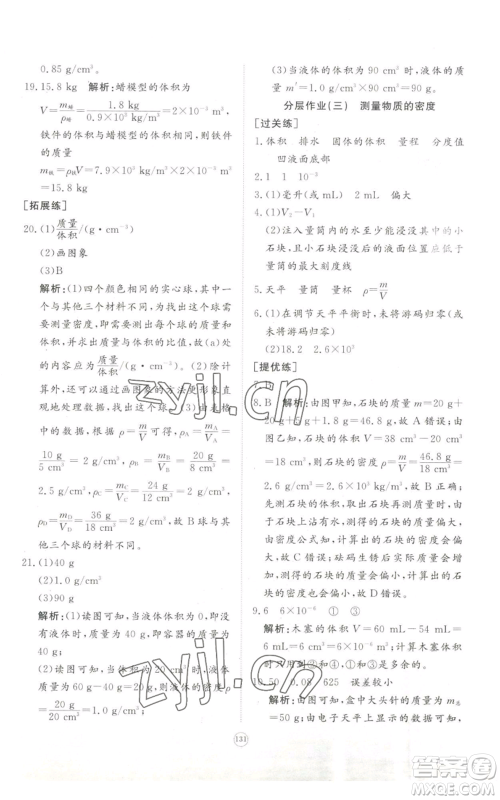 0.85 g/cm³
19. 15.8 kg 解析:蜡模型的体积为
V=m蜡/ρ蜡=1.8 kg/0.9×10³ kg/m³=2×10⁻³ m³
铁件的体积与蜡模型的体积相同,所以铁件
的质量
m铁=ρ铁V=7.9×10³ kg/m³×2×10⁻³ m³
=15.8 kg
[拓展练]
20. (1)质量/体积/(g·cm⁻³)
(2)画图象
(3)B
解析:(1)四个颜色相同的实心球,其中一个与
其他三个材料不同,为找出这个球需
要测量密度,以便找出这个球,故(a)处的
内容应为质量/体积/(g·cm⁻³)。(2)除了计
算外,还可以通过画图象的方法更形象直
观地处理数据,找出这个球。(3)由表格
中的数据,根据ρ=m/V可知,ρA=mA/VA=
10 g/5 cm³=2 g/cm³,ρB=mB/VB=20 g/8 cm³=
2.5 g/cm³,ρC=mC/VC=26 g/13 cm³=2 g/cm³,
ρD=mD/VD=36 g/18 cm³=2 g/cm³,故 B 球与其他
三个球的材料不同。
21. (1)40
(2)2 g/cm³
(3)90
解析:(1)读图可知,当液体的体积为 0 时,
质量为 40 g,即容器的质量为
40 g。
(2)读图可知,当体积为 20 cm³ 时,液体
质量为 60 g-40 g=20 g,液体的密度 ρ
=20 g/20 cm³=1 g/cm³。
(3)当液体的体积为 90 cm³ 时,液体的质
量 m′=1.0 g/cm³×90 cm³=90 g。
分层作业(三) 测量物质的密度
[过关练]
1. 体积 排水 固体的体积 量程 分度值
凹液面底部
2. 1 1 10⁻³
3. (1)毫升(或 mL) mL 偏大
4. (1)V₂-V₁
(2)注入量筒内的水至少能浸没整个小石
块;并且小石块浸没后的液面不能高于量
筒的最大刻度线
5. 天平 量筒 量杯 ρ=m/V
6. (1)在调节天平平衡时,未将游码归零(或
未将游码归零)
(2)18.2 2.6×10³
[提优练]
7. D
8. B 解析:由图甲知,石块的质量 m=20 g+
20 g+5 g+1.8 g=46.8 g,故 A 错误;由
图乙知,石块的体积 V=38 cm³-20 cm³
=18 cm³,则石块的密度 ρ=m/V=46.8 g/18 cm³
=2.6 g/cm³=2.6×10³ kg/m³,故 B 正确;
先测石块的体积,取出石块再测质量时,由
于石块上沾有水,测得的质量会偏大,由密
度公式知密度会偏大,测得的石块密度会偏
大,故 C 错误;砝码生锈后石块的质量会增
加,测得的石块的质量会偏小,石块的密度
会偏小,故 D 错误。
9. 6 6×10⁻⁶ ① ③
解析:木塞的体积 V=60 mL-54 mL=
6 mL=6 cm³=6×10⁻⁶ m³;木塞的体积
可以利用③和④;①和③计算得出。
10. 50 0.08 625 误差较小
解析:由图知,盒中大头针的质量为 m总
=50 g;由电子天平知,大头针的质量 m=
131
zyjl.cn